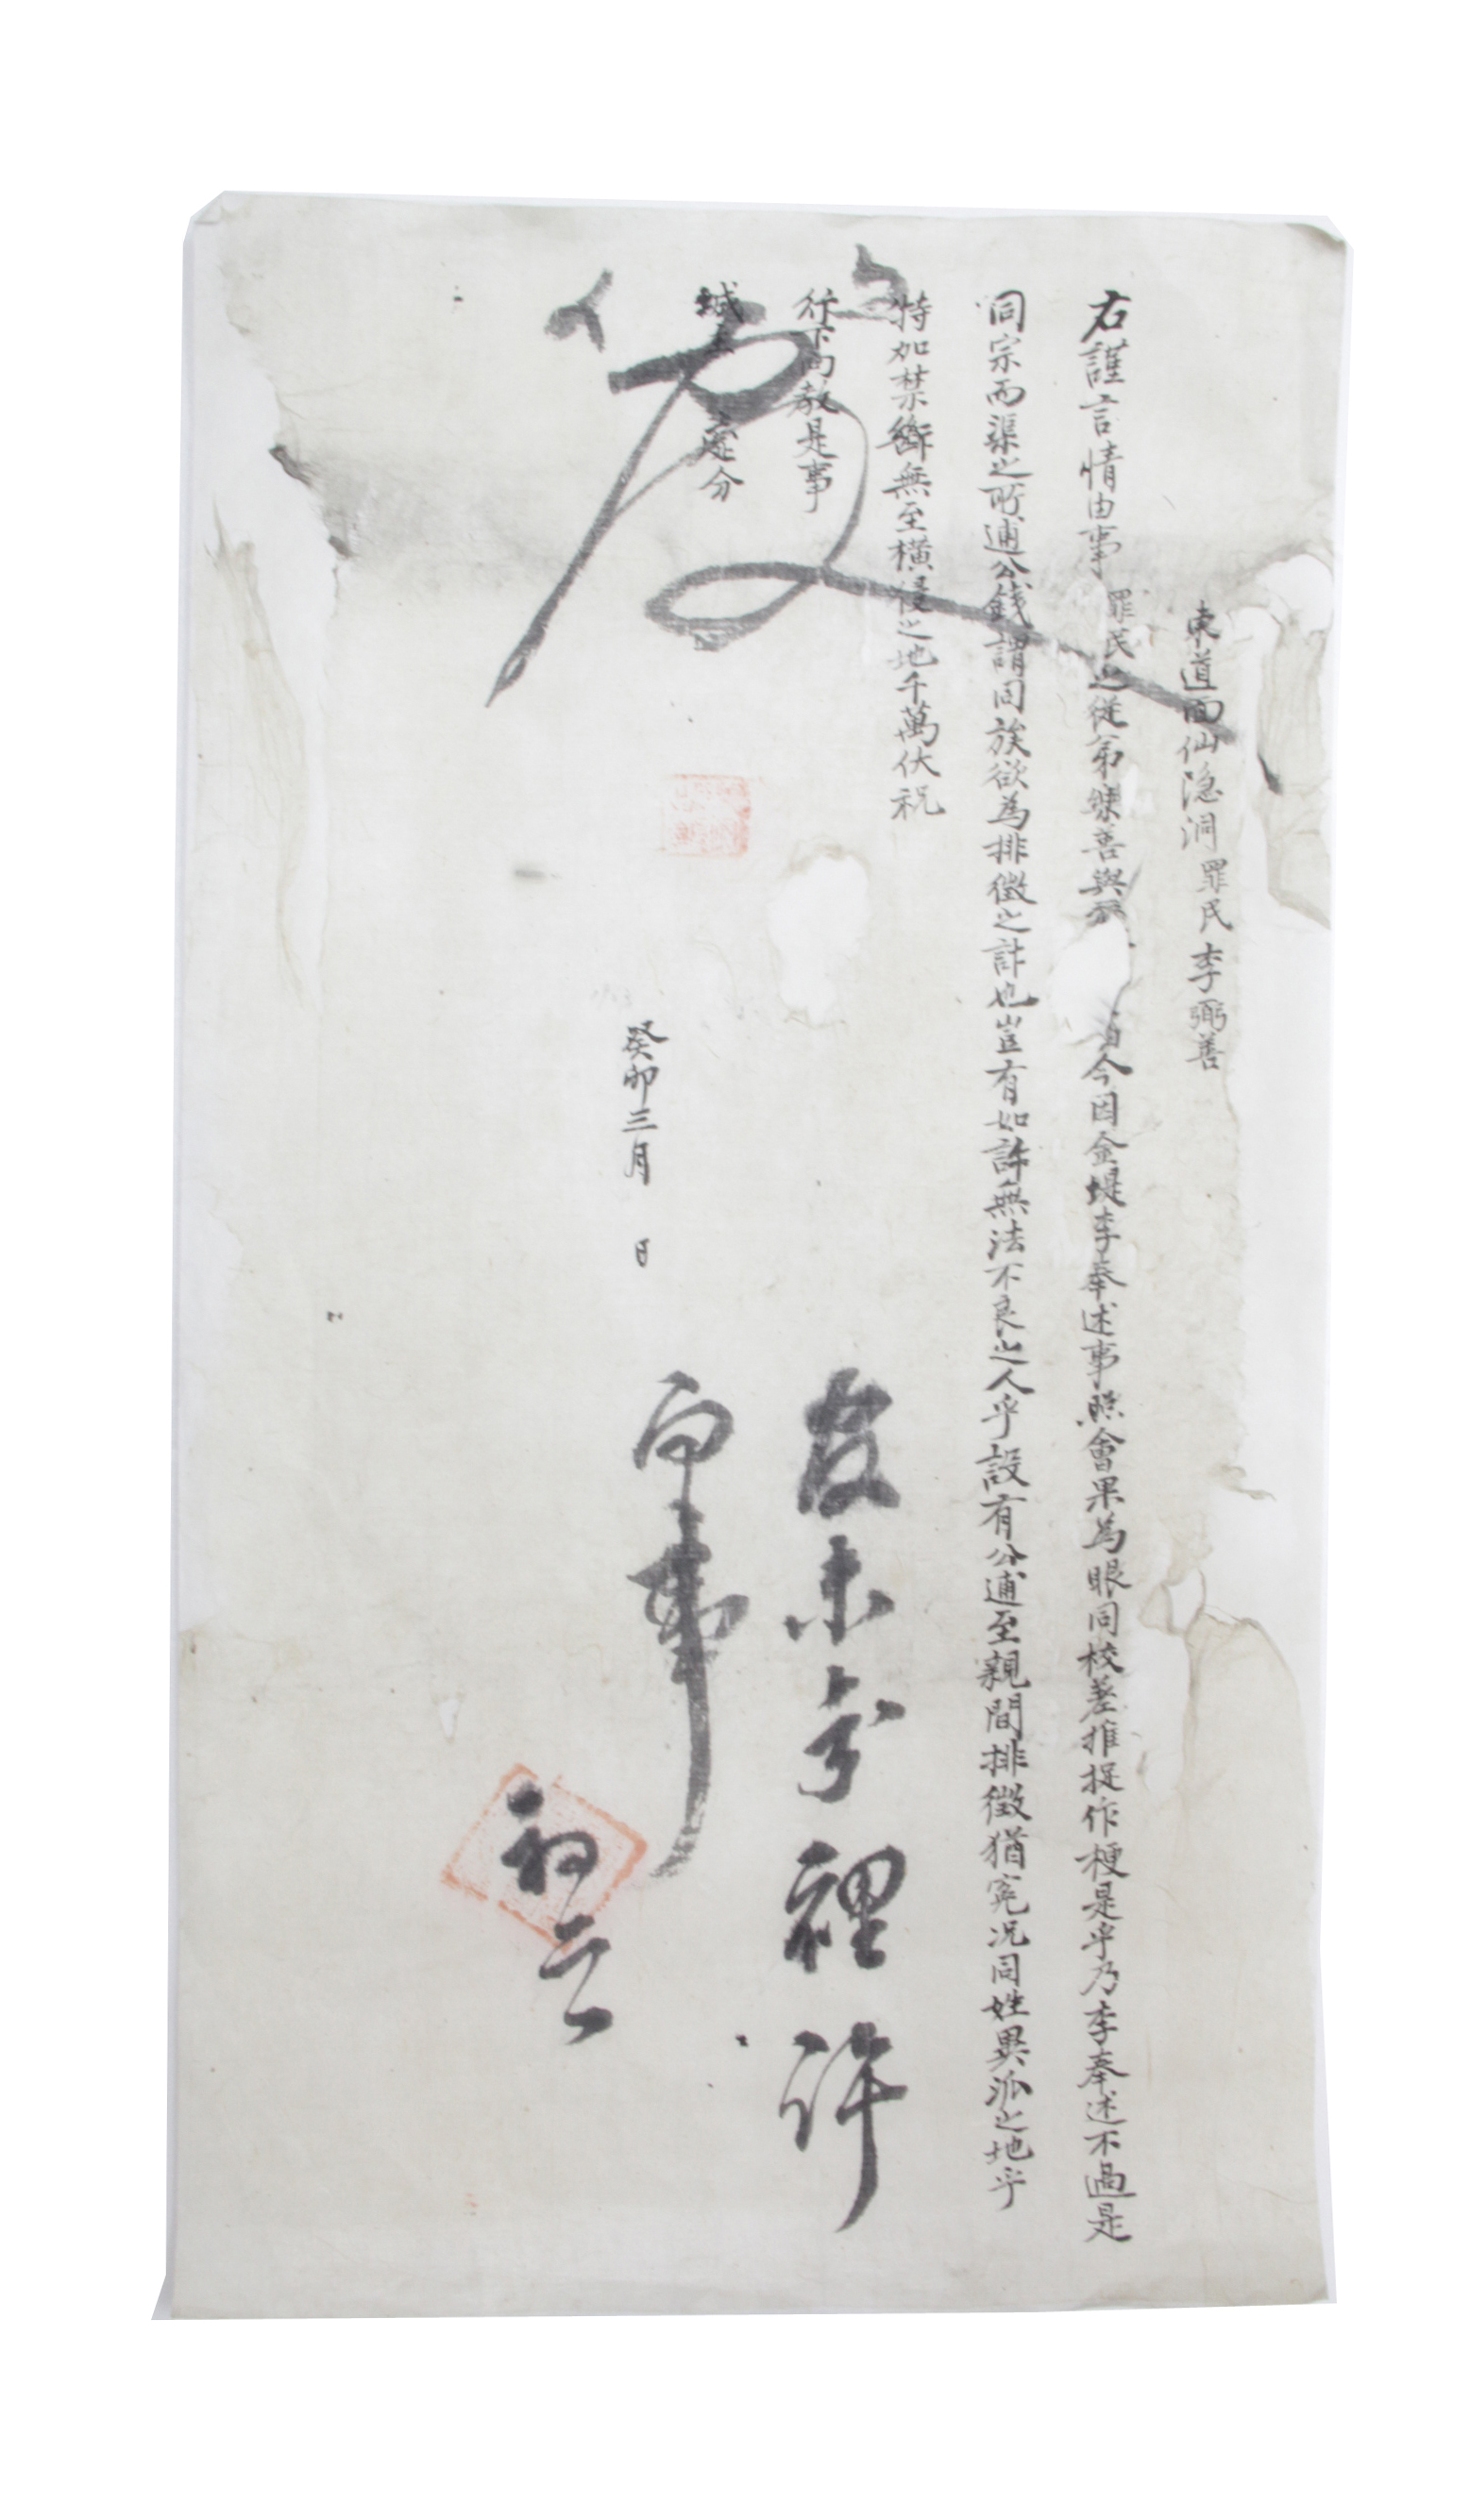 東道面仙隐洞罪民李弼善
右謹言情由事罪民之從弟燦善與 今因金堤李奉述事照會果為眼同校差推捉作梗是乎乃李奉述不過是
同宗而渠之所逋公錢謂同族欲為排徵之計也豈有如許無法不良之人乎設有公逋至親間排徵猶寃况同姓異派之地乎
特加禁斷無至橫侵之地千萬伏祝
行下向教是事
城主 處分
癸卯三月 日
裡許
向事
初二